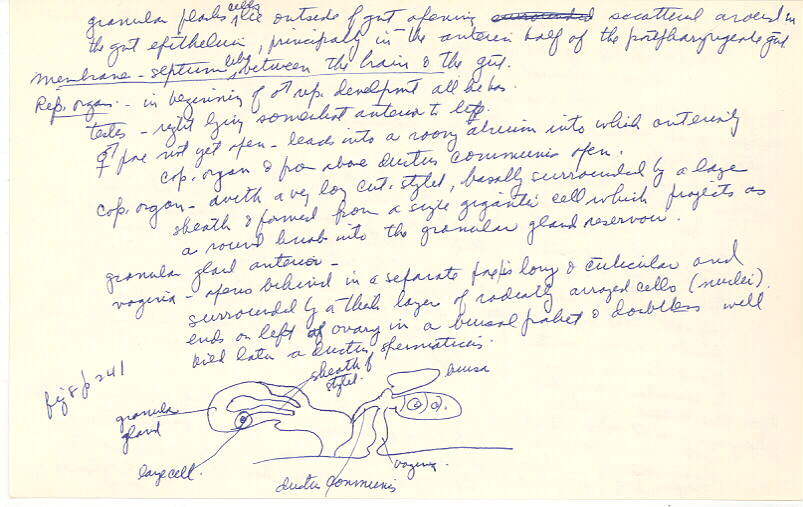 granular flasks cells lie outside of gut opening surrounded scattered around in
the gut epithelium, principally in the anterior half of the postpharyngeale gut
membrane-septum like between the brain & the gut.
Rep. organs. - in beginning of ♂ rep. develpmt all he has.
testes - right lying somewhat anterior to left.
pore not yet open - leads into a roomy atrium into which anteriorly
cop. organ & from above ductus communis open.
cop. organ - with a very long cut. stylet, basally surrounded by a large
sheath & formed from a single gigantic cell which projects as
a round knob into the granular gland reservoir.
granular gland anterior -
vagina - opens behind in a separate pore is long & cuticular and
surrounded by a thick layer of radially arranged cells (nuclei).
ends on left of ovary in a bursal pocket & doubtless well
later a ductus spermaticus.
fig 8 p 241
sheath of
stylet.
bursa
granular
gland
large cell.
vagina.
ductus communis